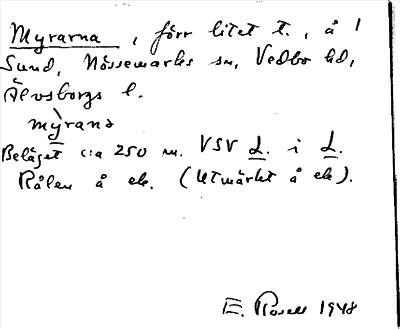 Myrarna, förr litet t., å 1
Sund, Nössemarks sn, Vedbo hd,
Älvsborgs l.
mỳrana
Beläget c:a 250 m. VSV L. i L.
Rålen å ek. (Utmärkt å ek).
E. Rosell 1948